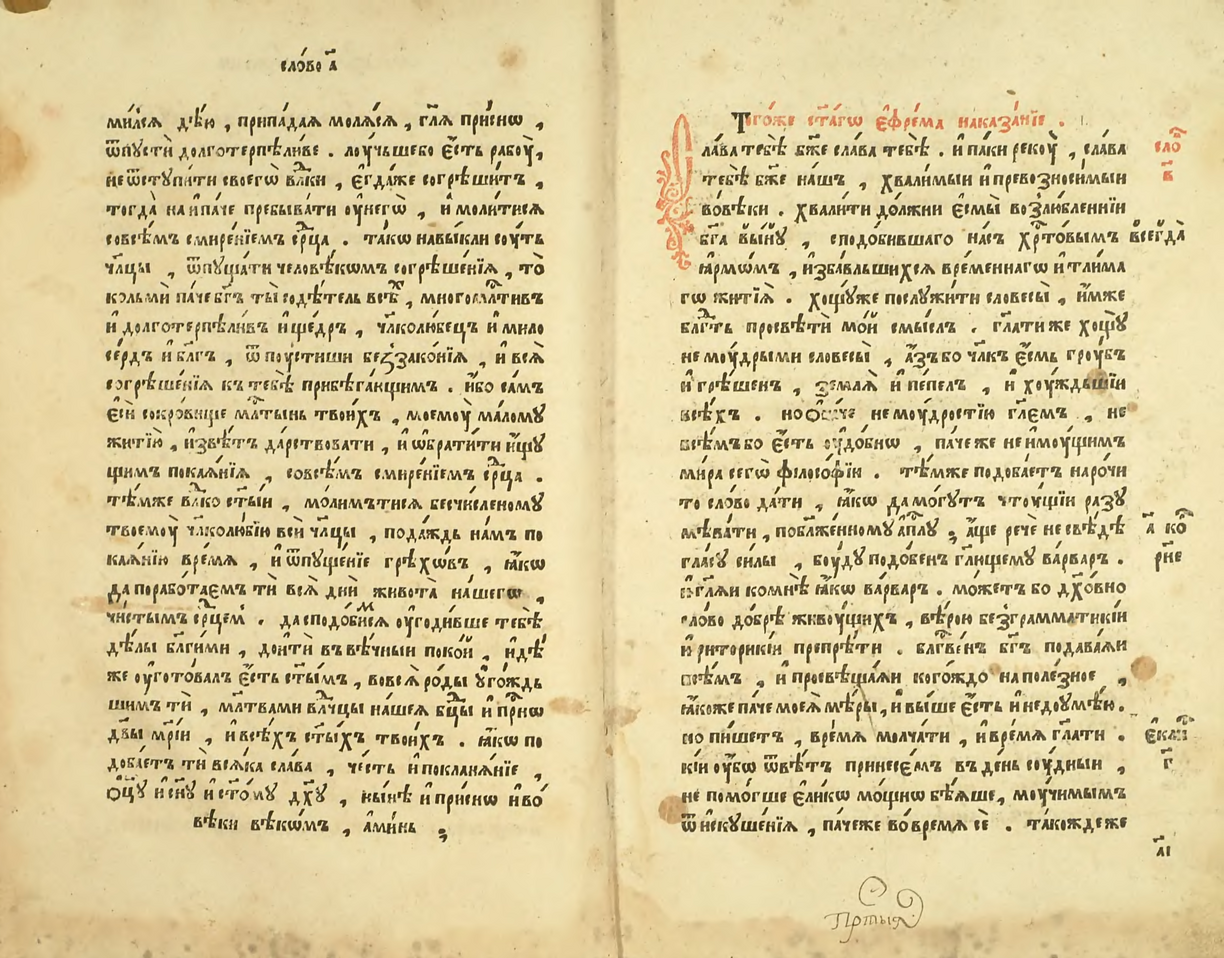 сло́во а҃
ми́лсѧ дѣ́ю , припа́даѧ молѧ́сѧ , гл҃ѧ при́снѡ ,
ѿпустѝ долготерпѣ́ливе . лоу́чьшебо є҆́сть рабоу̀ ,
не ѿступи́ти своегѡ̀ вл҃ки , є҆гда́же согрѣши́тъ ,
тогда̀ наипа́че пребыва́ти оу҆негѡ̀ , и҆ моли́тисѧ
совсѣ́мъ смире́нїемъ ср҃ца . та́кѡ навы́кли соу́ть
чл҃цы , ѿпуща́ти человѣ́кѡмъ согрѣше́нїѧ , то̀
кольмѝ па́че бг҃ъ ты̀ содѣ́тель всѣ́хъ , многомл҃тивъ
и҆ долготерпѣли́въ и҆ ще́дръ , чл҃колю́бецъ и҆ мило
се́рдъ и҆ бл҃гъ , ѿпоусти́ши беззако́нїѧ , и҆ всѧ̀
согрѣше́нїѧ к тебѣ̀ прибѣга́ющимъ . и҆́бо са́мъ
є҆сѝ сокро́вище мл҃тынь твои́хъ , моемоу̀ ма́лому
житїю̀ , и҆звѣ́тъ да́рствовати , и҆ ѡ҆брати́ти и҆́щу
щимъ покаѧ́нїѧ , совсѣ́мъ смире́нїемъ ср҃ца .
тѣ́мже вл҃ко ст҃ы́и , мо́лимътисѧ бесчи́сленому
твоемоу̀ чл҃колю́бїю всѝ чл҃цы , пода́ждь на́мъ по
каѧ́нїю вре́мѧ , и҆ ѿпуще́нїе грѣхо́въ , ꙗ҆́кѡ
да порабо́таемъ ти всѧ̀ днѝ живота̀ на́шегѡ ,
чи́стымъ ср҃цемъ . да сподо́бимсѧ оу҆годи́вше тебѣ̀
дѣ́лы бл҃ги́ми , доитѝ въ вѣ́чныи поко́и , и҆дѣ́
же оу҆гото́валъ є҆́сть ст҃ы́мъ , во всѧ̀ ро́ды оу҆го́ждь
шимъ тѝ , мл҃твами влч҃цы на́шеѧ бц҃ы и҆ при́снѡ
дв҃ы мр҃і́и , и҆ всѣ́хъ ст҃ы́хъ твои́хъ . ꙗ҆́кѡ по
доба́етъ тѝ всѧ́ка сла́ва , че́сть и҆ покланѧ́нїе ,
ѻ҆ц҃у̀ и҆ сн҃у и҆ ст҃о́му дх҃у , ны́нѣ и҆ при́снѡ и҆ во
вѣ́ки вѣкѡ́мъ , а҆ми́нь ;
Того́же ст҃а́гѡ є҆фре́ма наказа́нїе .
Сла́ва тебѣ̀ бж҃е сла́ва тебѣ̀ . и҆ па́ки рекоу̀ , сла́ва
сло҃ в҃
тебѣ̀ бж҃е на́шъ , хвали́мыи и҆ превозноси́мыи
во вѣ́ки . хвали́ти до́лжни є҆смы̀ возлю́бленнїи
бг҃а вы́ну , сподо́бившаго на́съ хр҃то́вымъ
всегда̀
ꙗ҆рмо́мъ , и҆зба́вльшихсѧ вре́меннагѡ и҆ тли́ма
гѡ житїѧ̀ . хощу́же послужи́ти словесы̀ , и҆́мже
бл҃гть просвѣтѝ мо́и смы́слъ . гл҃ати же хощу̀
не моу́дрыми словесы̀ , а҆́зъ бо чл҃къ є҆́смь гроу́бъ
и҆ грѣ́шенъ , землѧ̀ и҆ пе́пелъ , и҆ хоу́ждьшїи
всѣ́хъ . но ѻ҆ба́че не моу́дростїю гл҃емъ , не
всѣ́мъ бо є҆́сть оу҆до́бнѡ , па́че же не и҆моу́щимъ
ми́ра сегѡ̀ філосо́фїи . тѣ́мже подоба́етъ наро́чи
то сло́во да́ти , ꙗ҆́кѡ да мо́гутъ чтоу́щїи разу
мѣ́вати , побл҃же́нному а҆п҃лу , а҆́ще речѐ не свѣ́дѣ
а҃ ко҃
гла́су си́лы , боу́ду подо́бенъ гл҃ющему ва́рваръ .
рне
и҆ гл҃ѧи ко мнѣ̀ ꙗ҆́кѡ ва́рваръ . мо́жетъ бо дх҃о́вно
сло́во до́брѣ живоу́щихъ , вѣ́рою без грамматики́и
и҆ риторики́и препрѣ́ти . бл҃гве́нъ бг҃ъ подава́ѧи
всѣ́мъ , и҆ просвѣща́ѧи кого́ждо на поле́зное ,
ꙗ҆́коже па́че моеѧ̀ мѣ́ры , и҆ вы́ше є҆́сть и҆ недоумѣ́ю .
но пи́шетъ , вре́мѧ молча́ти , и҆ вре́мѧ гл҃ати .
є҆кли҃
кі́и оу҆́бѡ ѿвѣ́тъ принесе́мъ въ де́нь соу́дныи ,
г҃
не помо́гше є҆ли́кѡ мо́щнѡ бѣ́ѧше , моу́чимымъ
ѿ и҆скуше́нїѧ , па́чеже во вре́мѧ сѐ . та́кождеже
а҃і
Пртыя